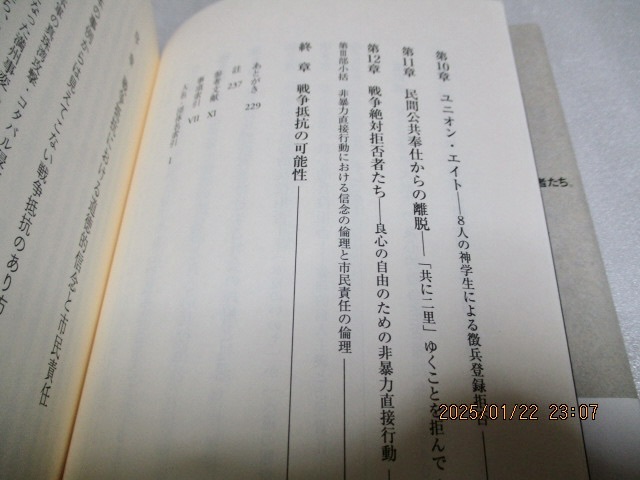 第10章　ユニオン・エイト――8人の神学生による徴兵登録拒否――
第11章　民間公共奉仕からの離脱――「共に二里」ゆくことを拒んで
第12章　戦争絶対拒否者たち――良心の自由のための非暴力直接行動
第Ⅲ部小括　非暴力直接行動における信念の倫理と市民責任の倫理――
終　章　戦争抵抗の可能性――
あとがき　229
註　237
参考文献　XI
事項索引　VII
I
における道徳的信念と市民責任
見えてこない戦争抵抗のあり方
真珠湾攻撃・コタバル
なった満州事変
者たち。
2025/01/22 23:07